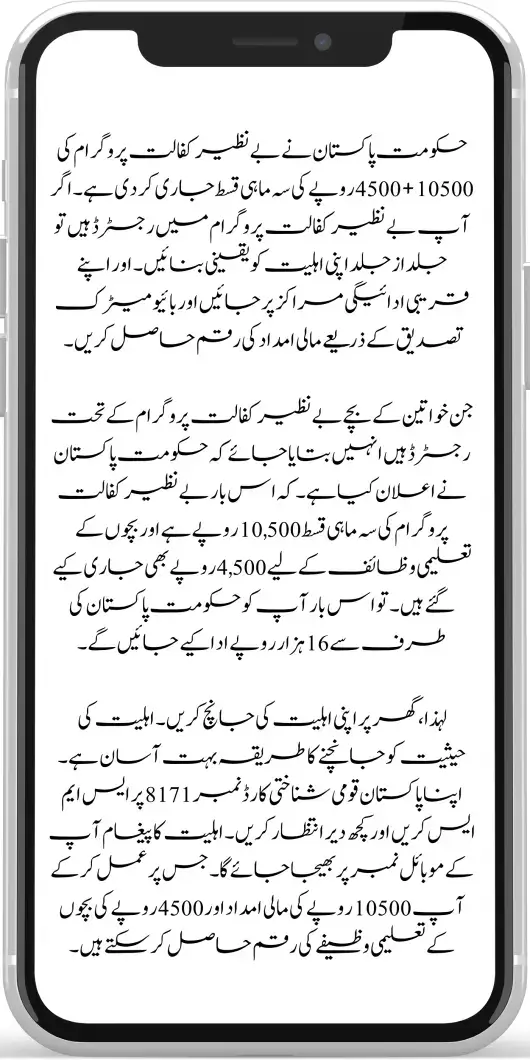 حکومت پاکستان نے بے نظیر کفالت پروگرام کی
10500+4500 روپے کی سہ ماہی قسط جاری کر دی ہے۔ اگر
آپ بے نظیر کفالت پروگرام میں رجسٹرڈ ہیں تو
جلد از جلد اپنی اہلیت کو یقینی بنائیں۔ اور اپنے
قریبی ادائیگی مراکز پر جائیں اور بائیو میٹرک
تصدیق کے ذریعے مالی امداد کی رقم حاصل کریں۔
جن خواتین کے بچے بے نظیر کفالت پروگرام کے تحت
رجسٹرڈ ہیں انہیں بتایا جائے کہ حکومت پاکستان
نے اعلان کیا ہے۔ کہ اس بار بے نظیر کفالت
پروگرام کی سہ ماہی قسط 10,500 روپے ہے اور بچوں کے
تعلیمی وظائف کے لیے 4,500 روپے بھی جاری کیے
گئے ہیں۔ تو اس بار آپ کو حکومت پاکستان کی
طرف سے 16 ہزار روپے ادا کیے جائیں گے۔
لہذا، گھر پر اپنی اہلیت کی جانچ کریں۔ اہلیت کی
حیثیت کو جانچنے کا طریقہ بہت آسان ہے۔
اپنا پاکستان قومی شناختی کارڈ نمبر 8171 پر ایس ایم
ایس کریں اور کچھ دیر انتظار کریں۔ اہلیت کا پیغام آپ
کے موبائل نمبر پر بھیجا جائے گا۔ جس پر عمل کر کے
آپ 10500 روپے کی مالی امداد اور 4500 روپے کی بچوں
کے تعلیمی وظیفے کی رقم حاصل کر سکتے ہیں۔